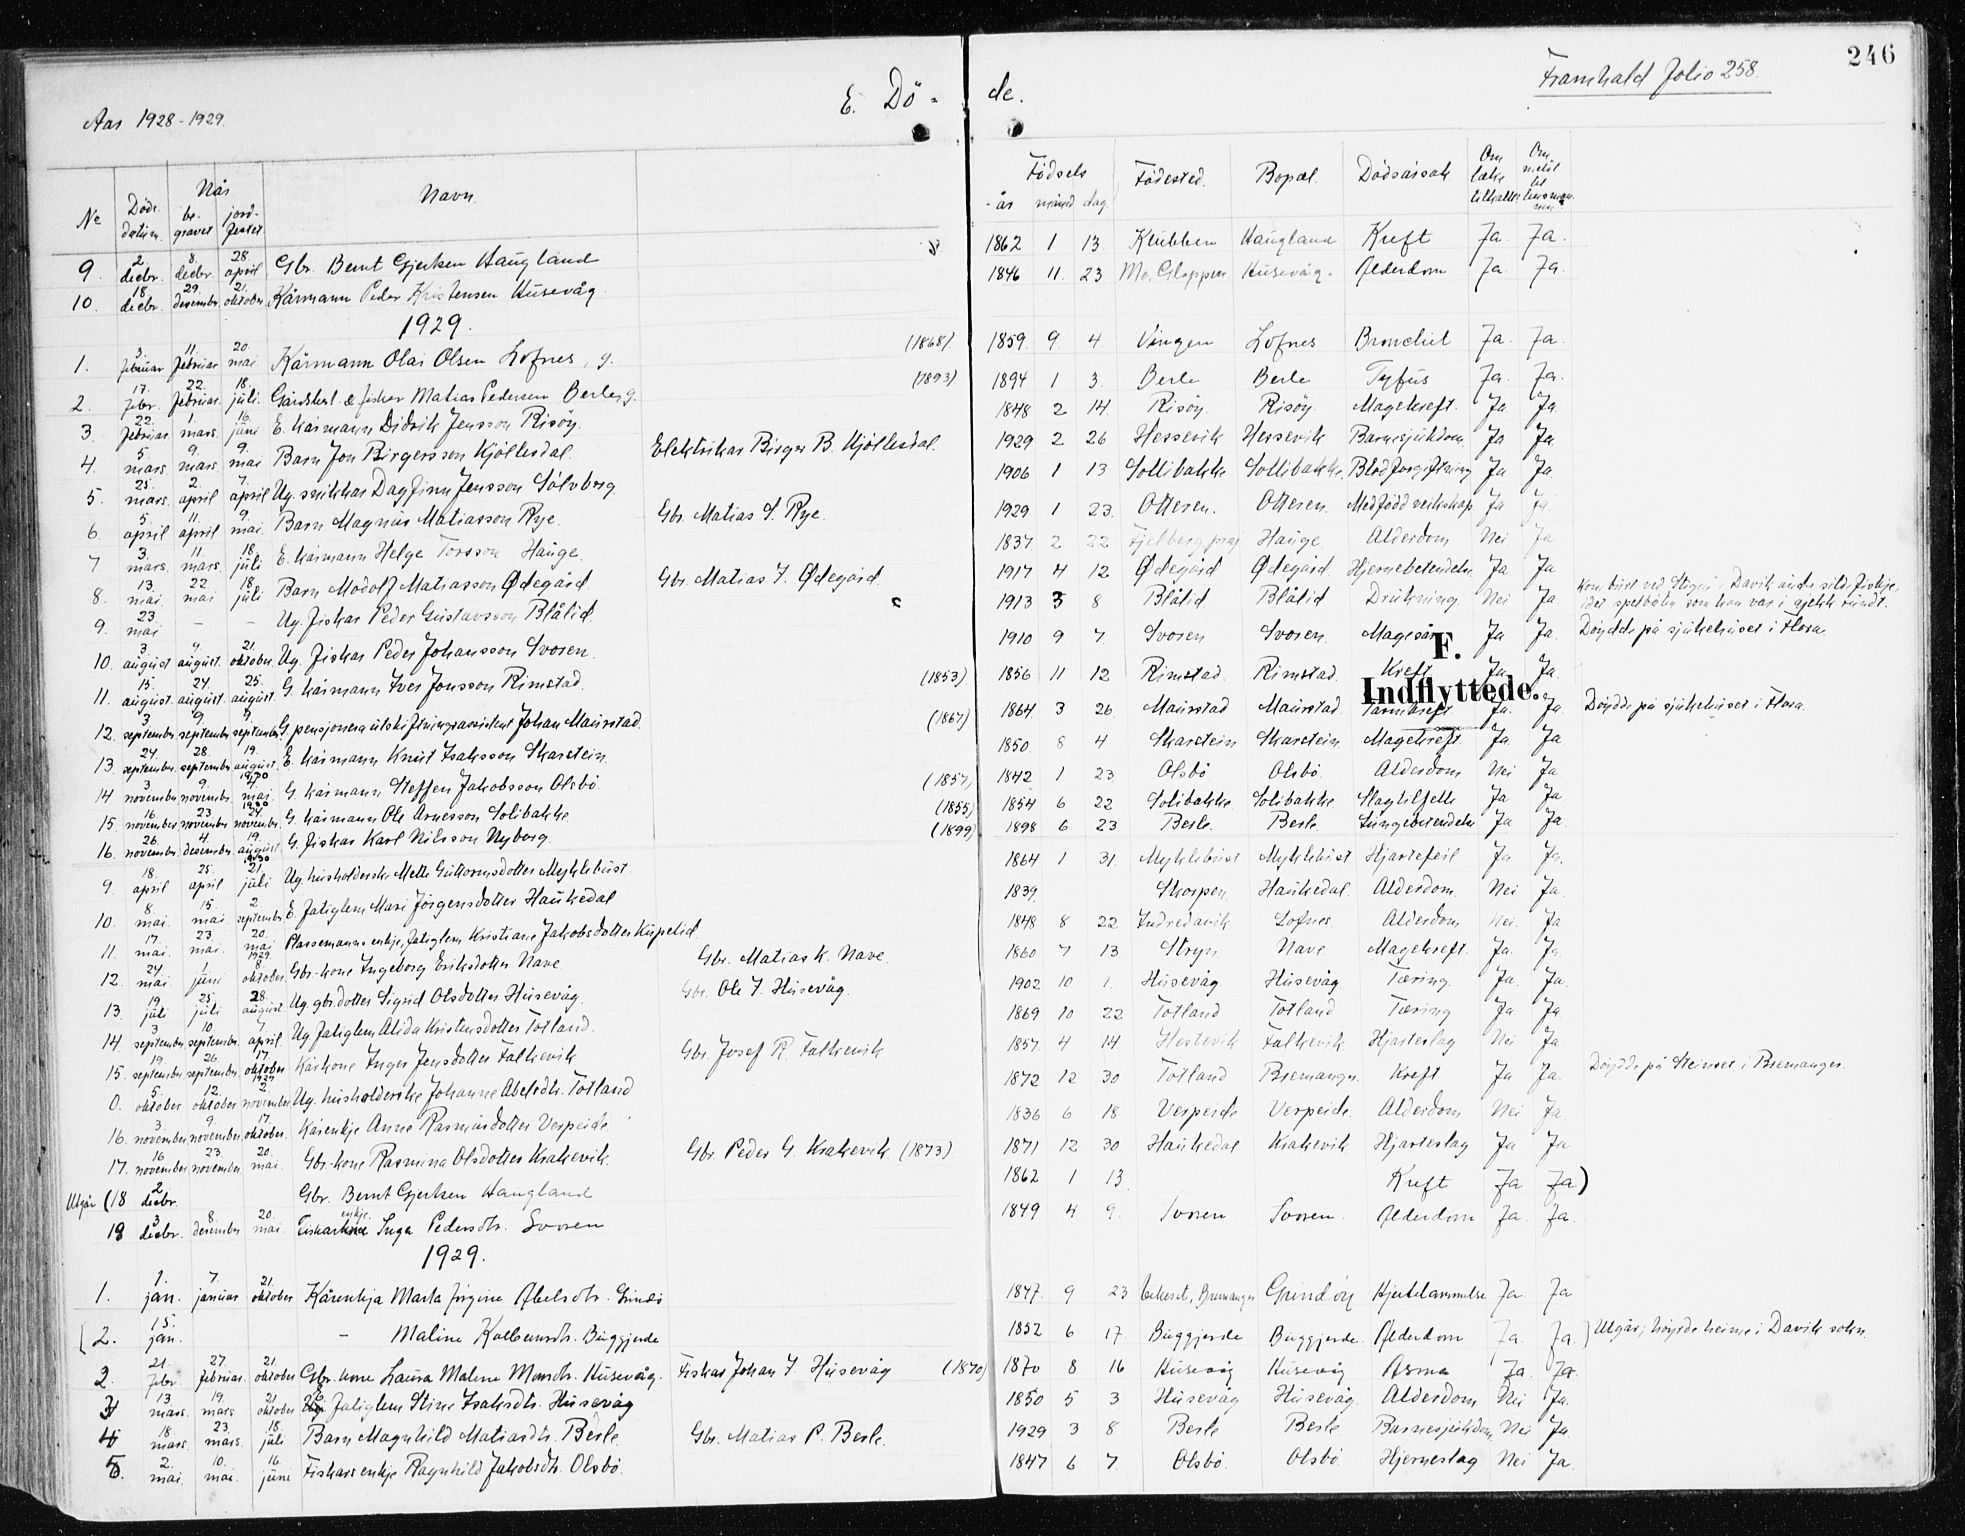 246
Framhald folio 258.
Aar 1928-1929.
E. Dö - de.
No | Döds datum. | Når be- gravet | jord- festet | Navn. | Födsels - år | måned | dag. | Födested. | Bopæl. | Dödsårsak | Om læke tilkalt | Om meldt til lensmannen
9. | 2. decbr. | 8. decbr. | 28. april | Gbr. Bernt Gjertsen Haugland | 1862 | 1 | 13. | Klubben | Haugland | Kreft | Ja. | Ja.
10. | 18. decbr. | 29. desember. | 21. oktober. | Kårmann Peder Kristensen Husevåg. | 1846 | 11. | 23 | Mo, Gloppen | Husevåg. | Alderdom | Ja. | Ja.
1929.
1. | 3. februar | 11. februar | 20. mai | Kårmann Olai Olsen Lofnes, g. | (1868) | 1859. | 9. | 4. | Vingen | Lofnes | Bronchit | Ja. | Ja.
2. | 17. febr. | 22. februar. | 18. juli. | Gardbest. & fisker Matias Pedersen Berle g. | (1893) | 1894 | 1 | 3. | Berle | Berle | Tyfus | Ja. | Ja.
3. | 22. februar. | 1. mars. | 16. juni | E. kårmann Didrik Jensson Risöy. | 1848 | 2 | 14. | Risöy. | Risöy. | Magekreft. | Ja | Ja
4. | 5. mars | 9. mars | 9. mai | Barn Jon Birgersson Kjöllesdal. | Elektrikar Birger B. Kjöllesdal. | 1929 | 2 | 26 | Hessevik | Hessevik | Barnesjukdom. | Ja | Ja
5. | 25. mars. | 2. april | 7. april | Ug. snikkar Dagfinn Jensson Sölvberg | 1906 | 1 | 13 | Sollibakke | Sollibakke. | Blodforgiftning | Ja | Ja
6. | 5. april | 11. april | 9. mai. | Barn Magnus Matiasson Rye. | Gbr. Matias S. Rye. | 1929 | 1 | 23. | Otteren. | Otteren. | Medfödd veikskap | Ja | Ja
7 | 3. mars. | 11. mars. | 18. juli | E. kårmann Helge Torsson Hauge. | 1837 | 2 | 22 | Fjelberg prgj | Hauge. | Alderdom | Nei | Ja
8. | 13. mai. | 22 mai | 18. juli | Barn Modolf Matiasson Ødegård. | Gbr. Matias J. Ødegård. | 1917 | 4 | 12 | Ødegård | Ødegård. | Hjernebetendelse | Ja | Ja
9. | 23. mai | - | - | Ug. fiskar Peder Gustavsson Blålid. | 1913 | 5 | 8 | Blålid | Blålid | Drukning | Nei | Ja. | idet spelbåten som han var i gjekk rundt.
10. | 3. august | 4. august. | 21. oktober. | Ug. fiskar Peder Johansson Svoren. | 1910 | 9 | 7 | Svoren | Svoren. | Magesår | Ja | Ja. | Döydde på sjukehuset i Flora.
11. | 15. august. | 24. august. | 25. august. | G. kårmann Iver Jonsson Rimstad. | (1853) | 1856 | 11 | 12 | Rimstad. | Rimstad. | Kreft | Ja | Ja.
F.
Indflyttede.
12. | 3. september. | 9. september | 9. september | G. pensjonera utskiftningsassistent Johan Maurstad. | (1867) | 1864. | 3 | 26. | Maurstad | Maurstad. | Tarmkreft | Ja. | Ja | Döydde på sjukehuset i Flora.
13. | 24. september. | 28. september | 19. august. 1930 | E. kårmann Knut Isaksson Skarstein. | 1850. | 8 | 4 | Skarstein | Skarstein. | Magekreft | Ja | Ja
14 | 3. november. | 9. november. | 4. mai. 1930 | G. kårmann Steffen Jakobsson Olsbö | (1857) | 1842 | 1 | 23 | Olsbö | Olsbö. | Alderdom | Nei | Ja
15 | 16. november | 23. november | 24. november. | G. kårmann Ole Arnesson Solibakke | (1855) | 1854 | 6 | 22 | Solibakke. | Solibakke. | Slagtilfelle | Ja | Ja
16. | 26. november. | 4. desember. | 19. august. 1930 | G. fiskar Karl Nilsson Nyborg. | (1899) | 1898 | 6 | 23 | Berle. | Berle. | Lungebetendelse | Ja | Ja.
9. | 18. april | 25. april | 21. juli | Ug. husholderske Mette Guttormsdotter Myklebust. | 1864 | 1 | 31. | Myklebust | Myklebust | Hjartefeil | Ja | Ja.
10. | 8. mai. | 15. mai. | 2. september | E. fatiglem Mari Jörgensdotter Haukedal | 1839. | Skorpen. | Haukedal. | Alderdom. | Nei | Ja.
11. | 17. mai. | 23. mai. | 20. mai 1929 | Plassemanns enkje, fatiglem Kristiane Jakobsdotter Kupelid | 1848 | 8 | 22 | Indredavik | Lofnes. | Alderdom | Nei. | Ja
12. | 24. mai. | 1. juni | 8. oktober. | Gbr-kone Ingeborg Eriksdotter Nave. | Gbr. Matias K. Nave. | 1860 | 7 | 13. | Stryn | Nave | Magekreft. | Ja. | Ja.
13. | 19. juli | 25. juli | 28. august | Ug gbr.dotter Sigrid Olsdotter Husevåg. | Gbr. Ole J. Husevåg. | 1902 | 10 | 1. | Husevåg | Husevåg. | Tæring. | Ja. | Ja.
14. | 3. september. | 10. september. | 7. april. | Ug fatiglem Alida Kristensdotter Totland. | 1869 | 10 | 22 | Totland | Totland | Tæring | Ja. | Ja
15. | 19. september. | 26. september. | 17. oktober 1929 | Kårkone Inger Jensdotter Falkevik | Gbr. Josef R. Falkevik. | 1857. | 4 | 14 | Hestevik | Falkevik | Hjarteslag | Nei | Ja
0. | 5. oktober | 12. oktober | 2. november | Ug. husholderske Johanne Abelsdtr. Totland | 1872 | 12 | 30 | Totland | Bremanger. | Kreft | Ja | Ja. | Döydde på Steinset i Bremanger.
16. | 3. november. | 9. november. | 17. oktober. | Kårenkje Anne Rasmusdotter Verpeide. | 1836 | 6 | 18 | Verpeide | Verpeide. | Alderdom | Nei | Ja.
17. | 16. november | 23. november. | 20. mai. | Gbr-kone Rasmina Olsdotter Krakevik. | Gbr. Peder G. Krakevik (1873). | 1871 | 12 | 30 | Haukedal | Krakevik | Hjarteslag | Ja | Ja.
Utgår (18 | 2. decbr. | Gbr. Bernt Gjertsen Haugland | 1862 | 1 | 13. | Kreft | Ja | Ja)
18 | 3. decbr. | 8. desember | 20. mai. | Fiskarenkje Inga Pedersdtr. Svoren | 1849 | 4 | 9. | Svoren | Svoren. | Alderdom | Ja. | Ja.
1929.
1. | 1. jan. | 7. januar | 21. oktober | Kårenkja Marta Jörgine Abelsdtr. Grindöy | 1847. | 9 | 23 | Bremanger | Grindöy | Hjertelammelse | Ja. | Ja
(2. | 15. jan. | - | Maline Kolbeinsdtr. Buggjerde | 1852 | 6 | 17. | Buggjerde | Buggjerde. | Alderdom | Ja. | Ja.) | Utgår, höyrde heime i Davik sokn.
2. | 21. febr. | 27. februar. | 21. oktober | Gbr. kone Laura Malene Monsdtr. Husevåg. | Fiskar Johan J. Husevåg | (1870) | 1870 | 8 | 16 | Husevåg | Husevåg | Asma | Ja. | Ja.
3 | 13. mars. | 19. mars | 21. oktober | Fatiglem Stine Isaksdtr. Husevåg | 1850 | 5 | 3 | Husevåg | Husevåg. | Alderdom | Nei | Ja.
4 | 18. mars. | 23. mars. | 18. juli | Barn Magnhild Matiasdtr. Berle. | Gbr. Matias P. Berle. | 1929 | 3 | 8 | Berle | Berle | Barnesjukdom. | Nei | Ja.
5. | 2. mai. | 10. mai. | 16. juni | Fiskarsenkje Ragnhild Jakobsdtr. Olsbö. | 1847 | 6 | 7. | Olsbö. | Olsbö | Hjerneslag | Nei | Ja.